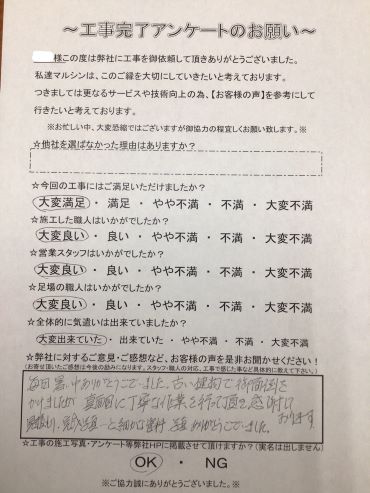 ～工事完了アンケートのお願い～
様この度は弊社に工事を御依頼して頂きありがとうございました。
私達マルシンは、このご縁を大切にしていきたいと考えております。
つきましては更なるサービスや技術向上の為、【お客様の声】を参考にして
行きたいと考えております。
※お忙しい中、大変恐縮ではございますが御協力の程宜しくお願い致します。※
☆他社を選ばなかった理由はありますか？
☆今回の工事にはご満足いただけましたか？
大変満足 ・ 満足 ・ やや不満 ・ 不満 ・ 大変不満
☆施工した職人はいかがでしたか？
大変良い ・ 良い ・ やや不満 ・ 不満 ・ 大変不満
☆営業スタッフはいかがでしたか？
大変良い ・ 良い ・ やや不満 ・ 不満 ・ 大変不満
☆足場の職人はいかがでしたか？
大変良い ・ 良い ・ やや不満 ・ 不満 ・ 大変不満
☆全体的に気遣いは出来ていましたか？
大変出来ていた ・ 出来ていた ・ やや不満 ・ 不満 ・ 大変不満
☆弊社に対するご意見・ご感想など、お客様の声を是非お聞かせください！
（お寄せ頂いたご感想は今後の励みになります。スタッフ・職人の対応、工事で感じた事など具体的に教えて下さい。）
毎日暑い中ありがとうございました。古い建物で御面倒を
かけましたが 真面目に丁寧な作業を行って頂き感謝して
おります。
ありがとうございました。
☆工事の施工写真・アンケート等弊社HPに掲載させて頂けますか？（実名は出しません）
OK ・ NG
※ご協力誠にありがとうございました。※